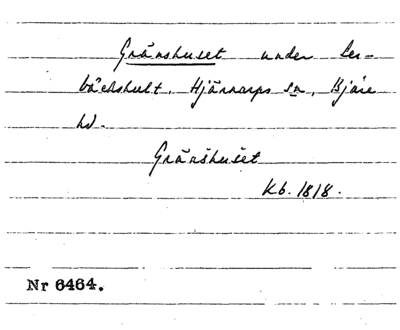 Gränshuset under Ler-
bäckshult, Hjärnarps sn, Bjäre
hd.
Gränshuset
Kb. 1818.
Nr 6464.